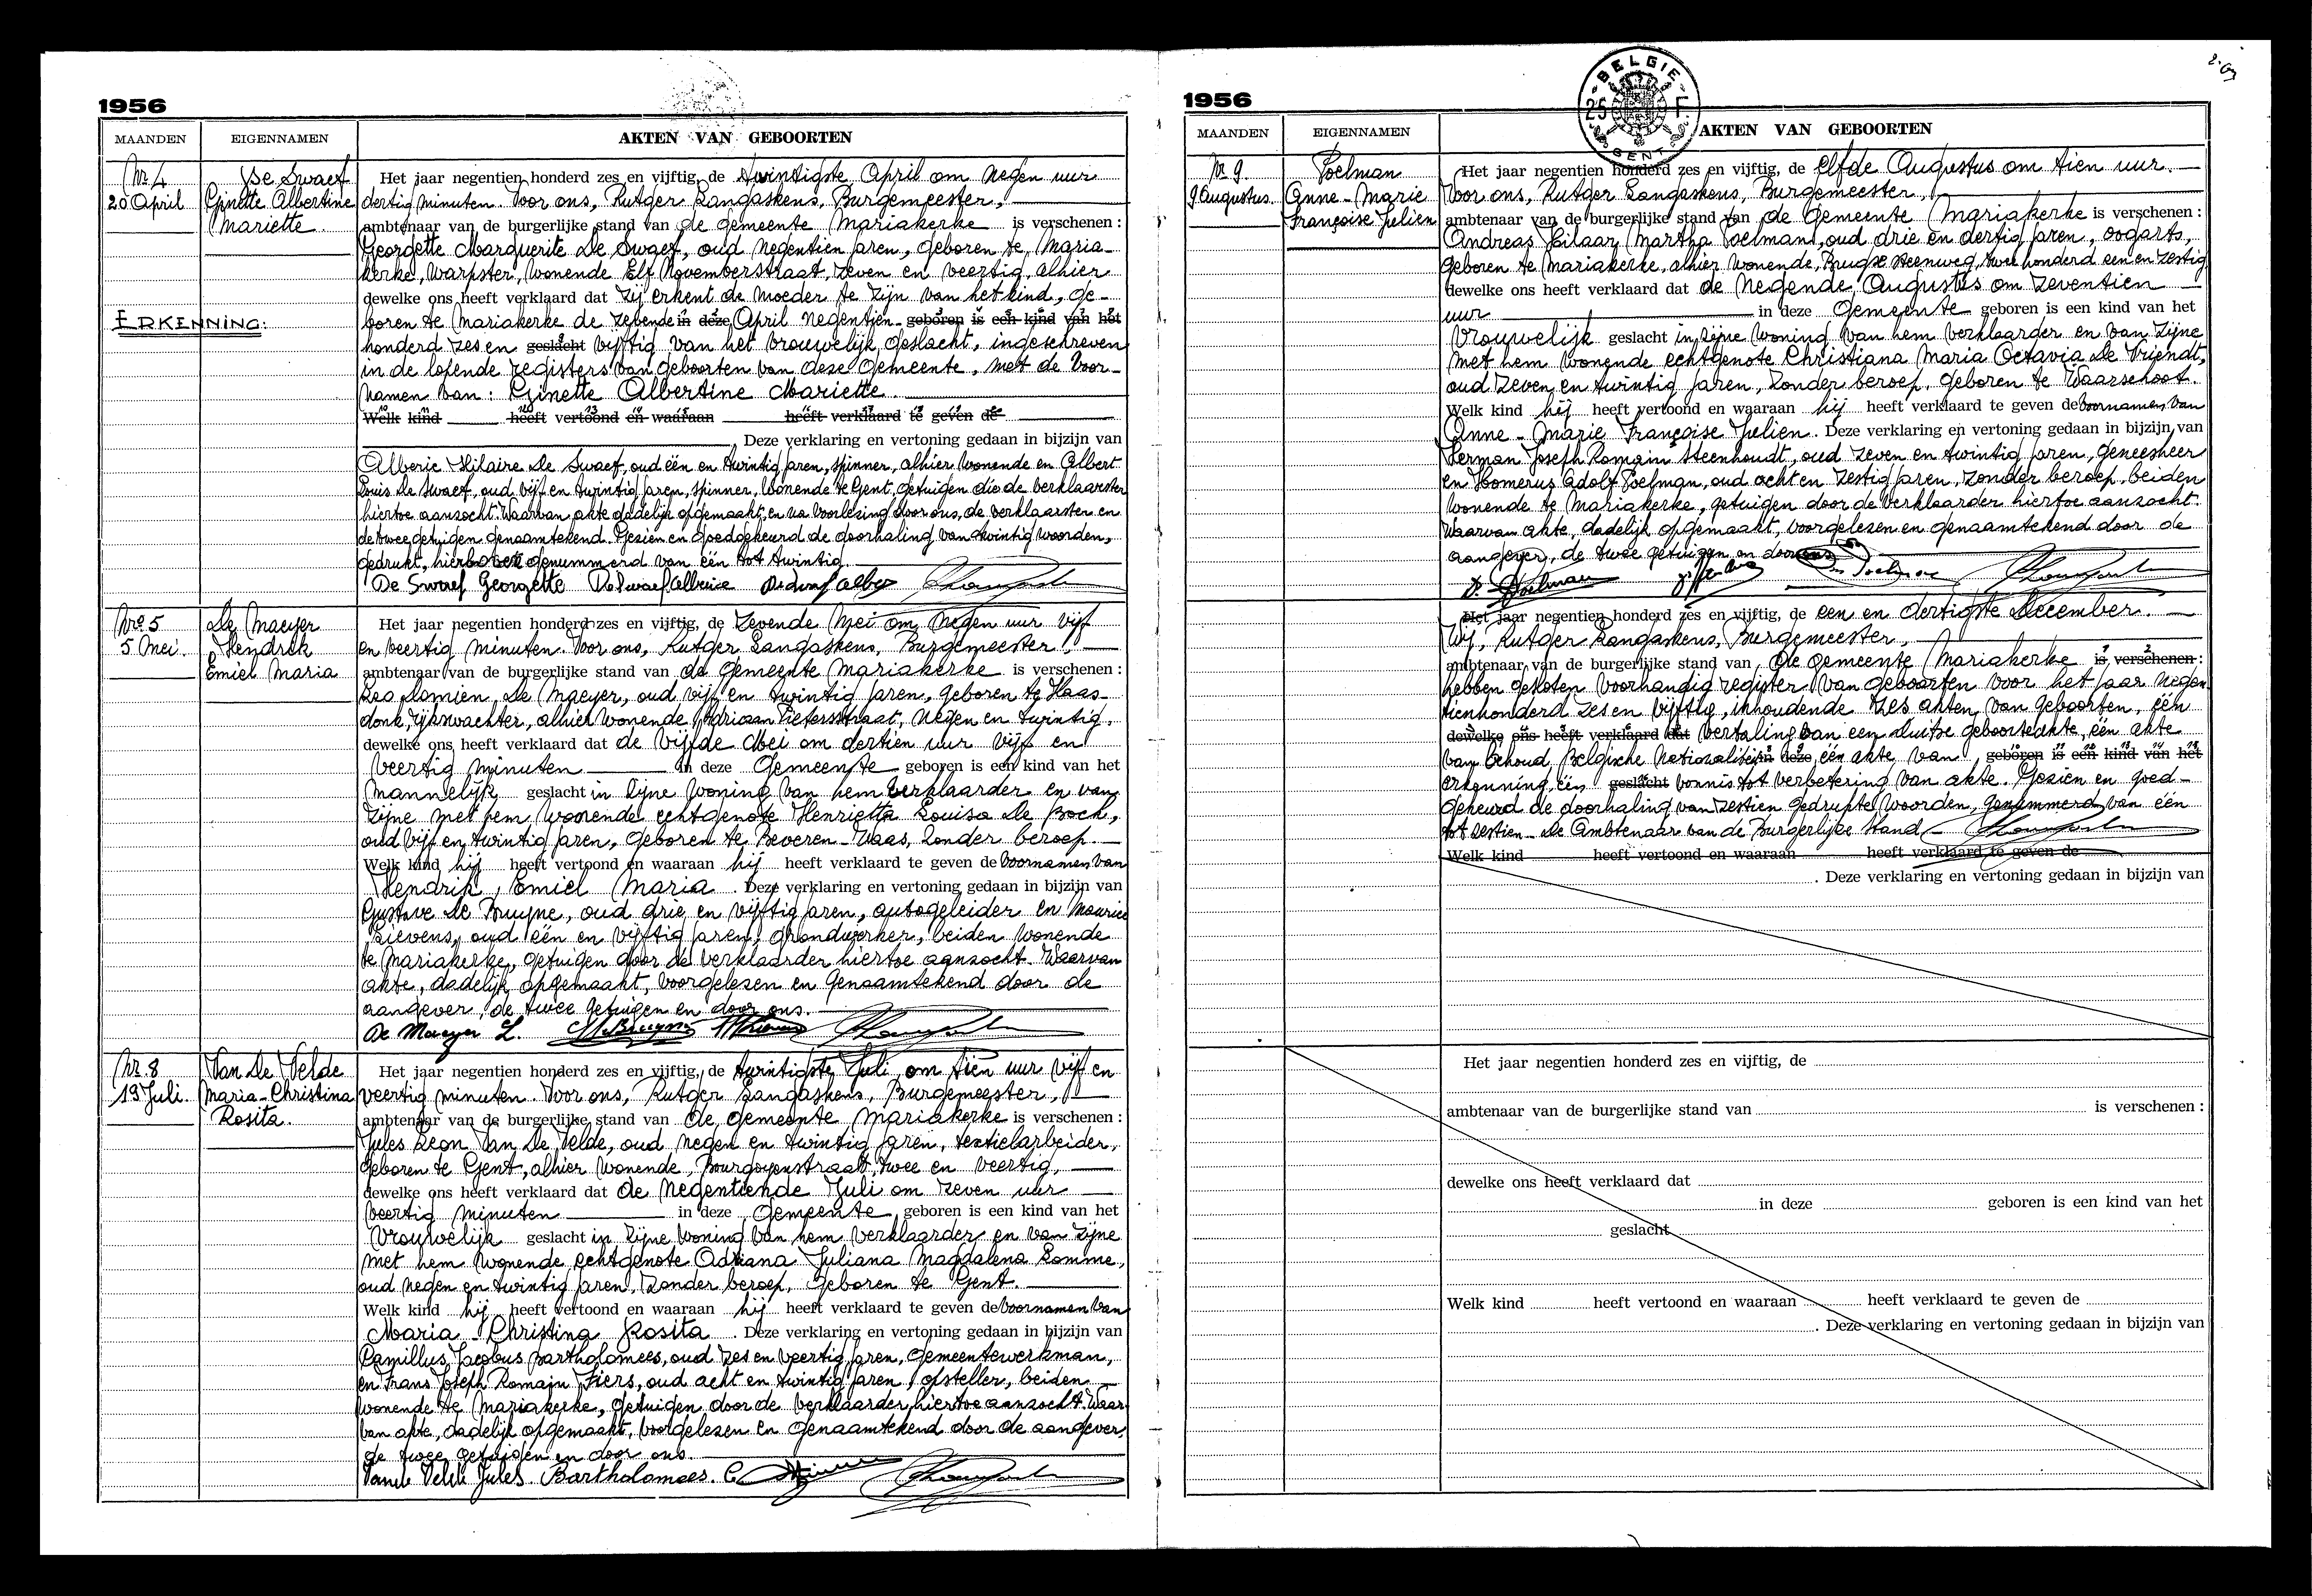 1956
MAANDEN EIGENNAMEN AKTEN VAN GEBOORTEN
Nr. 4
20 April
De Swaef
Ginette Albertine
Mariette.
ERKENNING:
Het jaar negentien honderd zes en vijftig, de twintigste April om negen uur
dertig minuten. Voor ons, Rutger Langaskens, Burgemeester,
ambtenaar van de burgerlijke stand van de gemeente Mariakerke is verschenen:
Georgette Marguerite De Swaef, oud negentien jaren, geboren te Maria-
kerke, warpster, wonende Elf Novemberstraat, zeven en veertig, alhier
dewelke ons heeft verklaard dat zij erkent de moeder te zijn van het kind, ge-
boren te Mariakerke de zevende in deze April negentien geboren is een kind van het
honderd zes en geslacht vijftig van het vrouwelijk geslacht, ingeschreven
in de lopende registers van geboorten van deze gemeente, met de voor-
namen van: Ginette Albertine Mariette.
Welk kind heeft vertoond en waaraan heeft verklaard te geven de
. Deze verklaring en vertoning gedaan in bijzijn van
Alberic Hilaire De Swaef, oud één en twintig jaren, spinner, alhier wonende en Albert
Louis De Swaef, oud vijf en twintig jaren, spinner, wonende te Gent, getuigen die de verklaarster
hiertoe aanzocht. Waarvan akte dadelijk opgemaakt, en na voorlezing door ons, de verklaarster en
de twee getuigen genaamtekend. Gezien en goedgekeurd de doorhaling van twintig woorden,
gedrukt, hierboven genummerd van één tot twintig.
De Swaef Georgette De Swaef Alberic De Swaef Albert
Nr. 5
5 Mei.
De Maeyer
Hendrik
Emiel Maria
Het jaar negentien honderd zes en vijftig, de zevende Mei om negen uur vijf
en veertig minuten. Voor ons, Rutger Langaskens, Burgemeester,
ambtenaar van de burgerlijke stand van de gemeente Mariakerke is verschenen:
Leo Domien De Maeyer, oud vijf en twintig jaren, geboren te Haas-
donk, rijkswachter, alhier wonende Adriaan Pietersstraat, negen en twintig,
dewelke ons heeft verklaard dat de vijfde Mei om dertien uur vijf en
veertig minuten in deze Gemeente geboren is een kind van het
mannelijk geslacht in zijne woning van hem verklaarder en van
zijne met hem wonende echtgenote Henrietta Louisa De Bock,
oud vijf en twintig jaren, geboren te Beveren-Waas, zonder beroep.
Welk kind hij heeft vertoond en waaraan hij heeft verklaard te geven de voornamen van
Hendrik, Emiel Maria. Deze verklaring en vertoning gedaan in bijzijn van
Gustave De Bruyne, oud drie en vijftig jaren, autogeleider en Maurice
Lievens, oud één en vijftig jaren, grondwerker, beiden wonende
te Mariakerke, getuigen door de verklaarder hiertoe aanzocht. Waarvan
akte, dadelijk opgemaakt, voorgelezen en genaamtekend door de
aangever, de twee getuigen en door ons.
De Maeyer L.
Nr. 8
19 Juli.
Van De Velde
Maria-Christina
Rosita.
Het jaar negentien honderd zes en vijftig, de twintigste Juli om tien uur vijf en
veertig minuten. Voor ons, Rutger Langaskens, Burgemeester,
ambtenaar van de burgerlijke stand van de gemeente Mariakerke is verschenen:
Jules Leon Van De Velde, oud negen en twintig jaren, textielarbeider,
geboren te Gent, alhier wonende, Bourgoyenstraat, twee en veertig,
dewelke ons heeft verklaard dat de negentiende Juli om zeven uur
veertig minuten in deze Gemeente geboren is een kind van het
vrouwelijk geslacht in zijne woning van hem verklaarder en van zijne
met hem wonende echtgenote Adriana Juliana Magdalena Lomme,
oud negen en twintig jaren, zonder beroep, geboren te Gent.
Welk kind hij heeft vertoond en waaraan hij heeft verklaard te geven de voornamen van
Maria-Christina Rosita. Deze verklaring en vertoning gedaan in bijzijn van
Camillus Jacobus Bartholomees, oud zes en veertig jaren, gemeentewerkman,
en Frans Joseph Romain Fiers, oud acht en twintig jaren, opsteller, beiden
wonende te Mariakerke, getuigen door de verklaarder hiertoe aanzocht. Waar-
van akte, dadelijk opgemaakt, voorgelezen en genaamtekend door de aangever,
de twee getuigen en door ons.
Van de Velde Jules. Bartholomees. C
1956
BELGIE
25 F
GENT
MAANDEN EIGENNAMEN AKTEN VAN GEBOORTEN
Nr. 9.
9 Augustus.
Poelman
Anne-Marie
Françoise Julien
Het jaar negentien honderd zes en vijftig, de elfde Augustus om tien uur.
Voor ons, Rutger Langaskens, Burgemeester,
ambtenaar van de burgerlijke stand van de Gemeente Mariakerke is verschenen:
Andreas Hilaar Martha Poelman, oud drie en dertig jaren, oogarts,
geboren te Mariakerke, alhier wonende, Brugse steenweg, twee honderd een en zestig
dewelke ons heeft verklaard dat de negende Augustus om zeventien
uur in deze Gemeente geboren is een kind van het
vrouwelijk geslacht in zijne woning van hem verklaarder en van zijne
met hem wonende echtgenote Christiana Maria Octavia De Vriendt,
oud zeven en twintig jaren, zonder beroep, geboren te Waarschoot.
Welk kind hij heeft vertoond en waaraan hij heeft verklaard te geven de voornamen van
Anne-Marie Françoise Julien. Deze verklaring en vertoning gedaan in bijzijn van
Herman Joseph Romain Steenhoudt, oud zeven en twintig jaren, geneesheer
en Homerus Adolf Poelman, oud acht en zestig jaren, zonder beroep, beiden
wonende te Mariakerke, getuigen door de verklaarder hiertoe aanzocht.
Waarvan akte, dadelijk opgemaakt, voorgelezen en genaamtekend door de
aangever, de twee getuigen en door ons
Dr. Poelman
Het jaar negentien honderd zes en vijftig, de een en dertigste December.
Wij, Rutger Langaskens, Burgemeester,
ambtenaar van de burgerlijke stand van de Gemeente Mariakerke is verschenen:
hebben gesloten voorhandig register van geboorten voor het jaar negen
tienhonderd zes en vijftig, inhoudende zes akten van geboorten, één
dewelke ons heeft verklaard dat vertaling van een duitse geboorteakte, één akte
van behoud Belgische Nationaliteit in deze één akte van geboren is een kind van het
erkenning, één geslacht vonnis tot verbetering van akte. Gezien en goed-
gekeurd de doorhaling van zestien gedrukte woorden, genummerd van één
tot zestien. De Ambtenaar van de Burgerlijke Stand
Welk kind heeft vertoond en waaraan heeft verklaard te geven de
. Deze verklaring en vertoning gedaan in bijzijn van
Het jaar negentien honderd zes en vijftig, de
ambtenaar van de burgerlijke stand van is verschenen:
dewelke ons heeft verklaard dat
in deze geboren is een kind van het
geslacht
Welk kind heeft vertoond en waaraan heeft verklaard te geven de
. Deze verklaring en vertoning gedaan in bijzijn van